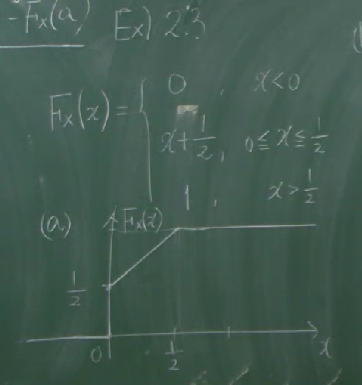 -Fx(a) Ex) 2.3
Fx(x) = { 0 , x<0
x+1/2, 0≤x≤1/2
1 , x>1/2
(a) Fx(x)
1/2
0 1/2 x